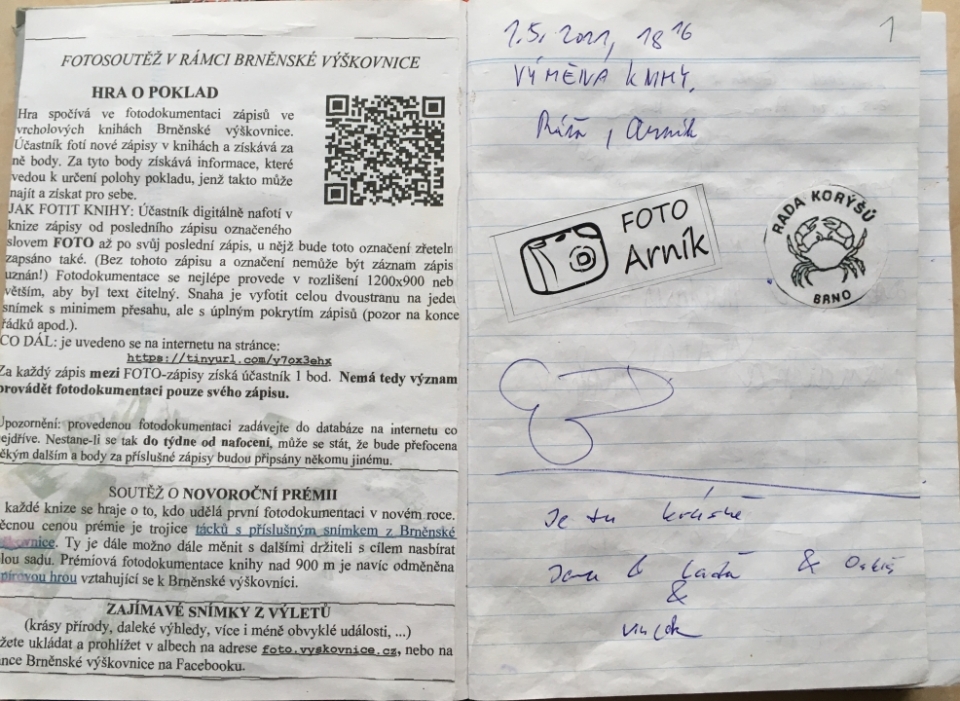 FOTOSOUTĚŽ V RÁMCI BRNĚNSKÉ VÝŠKOVNICE
HRA O POKLAD
Hra spočívá ve fotodokumentaci zápisů ve
vrcholových knihách Brněnské výškovnice.
Účastník fotí nové zápisy v knihách a získává za
ně body. Za tyto body získává informace, které
vedou k určení polohy pokladu, jenž takto může
najít a získat pro sebe.
JAK FOTIT KNIHY: Účastník digitálně nafotí v
knize zápisy od posledního zápisu označeného
slovem FOTO až po svůj poslední zápis, u nějž bude toto označení zřeteln
zapsáno také. (Bez tohoto zápisu a označení nemůže být záznam zápis
uznán!) Fotodokumentace se nejlépe provede v rozlišení 1200x900 neb
větším, aby byl text čitelný. Snaha je vyfotit celou dvoustranu na jeden
snímek s minimem přesahu, ale s úplným pokrytím zápisů (pozor na konce
řádků apod.).
CO DÁL: je uvedeno se na internetu na stránce:
https://tinyurl.com/y7ox3ehx
Za každý zápis mezi FOTO-zápisy získá účastník 1 bod. Nemá tedy význam
provádět fotodokumentaci pouze svého zápisu.
Upozornění: provedenou fotodokumentaci zadávejte do databáze na internetu co
ejdříve. Nestane-li se tak do týdne od nafocení, může se stát, že bude přefocena
ěkým dalším a body za příslušné zápisy budou připsány někomu jinému.
SOUTĚŽ O NOVOROČNÍ PRÉMII
každé knize se hraje o to, kdo udělá první fotodokumentaci v novém roce.
ěcnou cenou prémie je trojice tácků s příslušným snímkem z Brněnské
škovnice. Ty je dále možno dále měnit s dalšími držiteli s cílem nasbírat
lou sadu. Prémiová fotodokumentace knihy nad 900 m je navíc odměněna
pírovou hrou vztahující se k Brněnské výškovnici.
ZAJÍMAVÉ SNÍMKY Z VÝLETŮ
(krásy přírody, daleké výhledy, více i méně obvyklé události, ...)
žete ukládat a prohlížet v albech na adrese foto.vyskovnice.cz, nebo na
ánce Brněnské výškovnice na Facebooku.
1
1.5. 2021, 18 16
VÝMĚNA KNIHY.
, Arník
FOTO
Arník
RADA KORÝŠŮ
BRNO
Je tu krásně
Jana & Laďa &
&